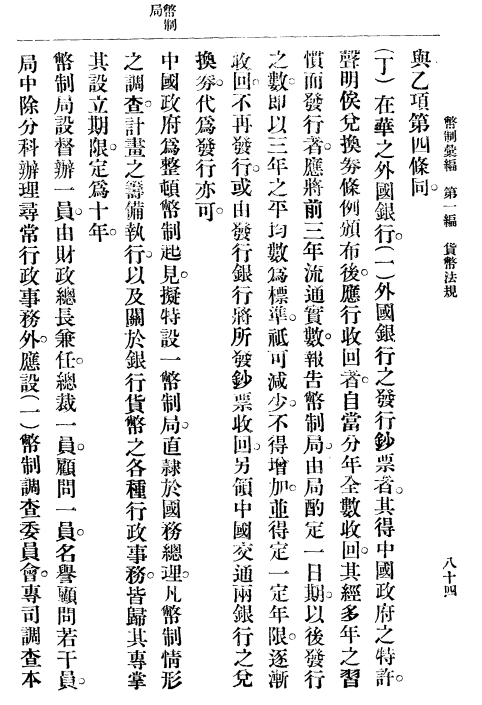 幣制彙編　第一編　貨幣法規
八十四
幣制局
與乙項第四條同。
(丁)在華之外國銀行。(一)外國銀行之發行鈔票者。其得中國政府之特許。
聲明俟兌換券條例頒布後。應行收回者。自當分年全數收回。其經多年之習
慣而發行者。應將前三年流通實數。報告幣制局。由局酌定一日期。以後發行
之數。即以三年之平均數爲標準。祗可減少。不得增加。並得定一定年限。逐漸
收回。不再發行。或由發行銀行將所發鈔票收回。另領中國交通兩銀行之兌
換券。代爲發行亦可。
中國政府爲整頓幣制起見。擬特設一幣制局。直隸於國務總理。凡幣制情形
之調查。計畫之籌備執行。以及關於銀行貨幣之各種行政事務。皆歸其專掌
其設立期限。定爲十年。
幣制局設督辦一員。由財政總長兼任。總裁一員。顧問一員。名譽顧問若干員。
局中除分科辦理尋常行政事務外。應設(一)幣制調查委員會。專司調查本